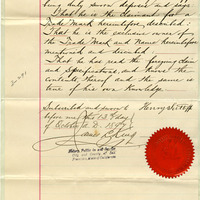 being duly sworn deposes and says
That he is the claimant for a
Trade Mark hereinbefore described:
That he is the exclusive owner of
the Trade Mark and Name hereinbefore
mentioned and described.
That he has read the foregoing claim
and specifications, and knows the
contents thereof and the same is
true of his own knowledge.
Subscribed and sworn to Henry
before me this day
of October A.D. 18
James L. King
Notary Public in and for the
City and County of San
Francisco, State of California